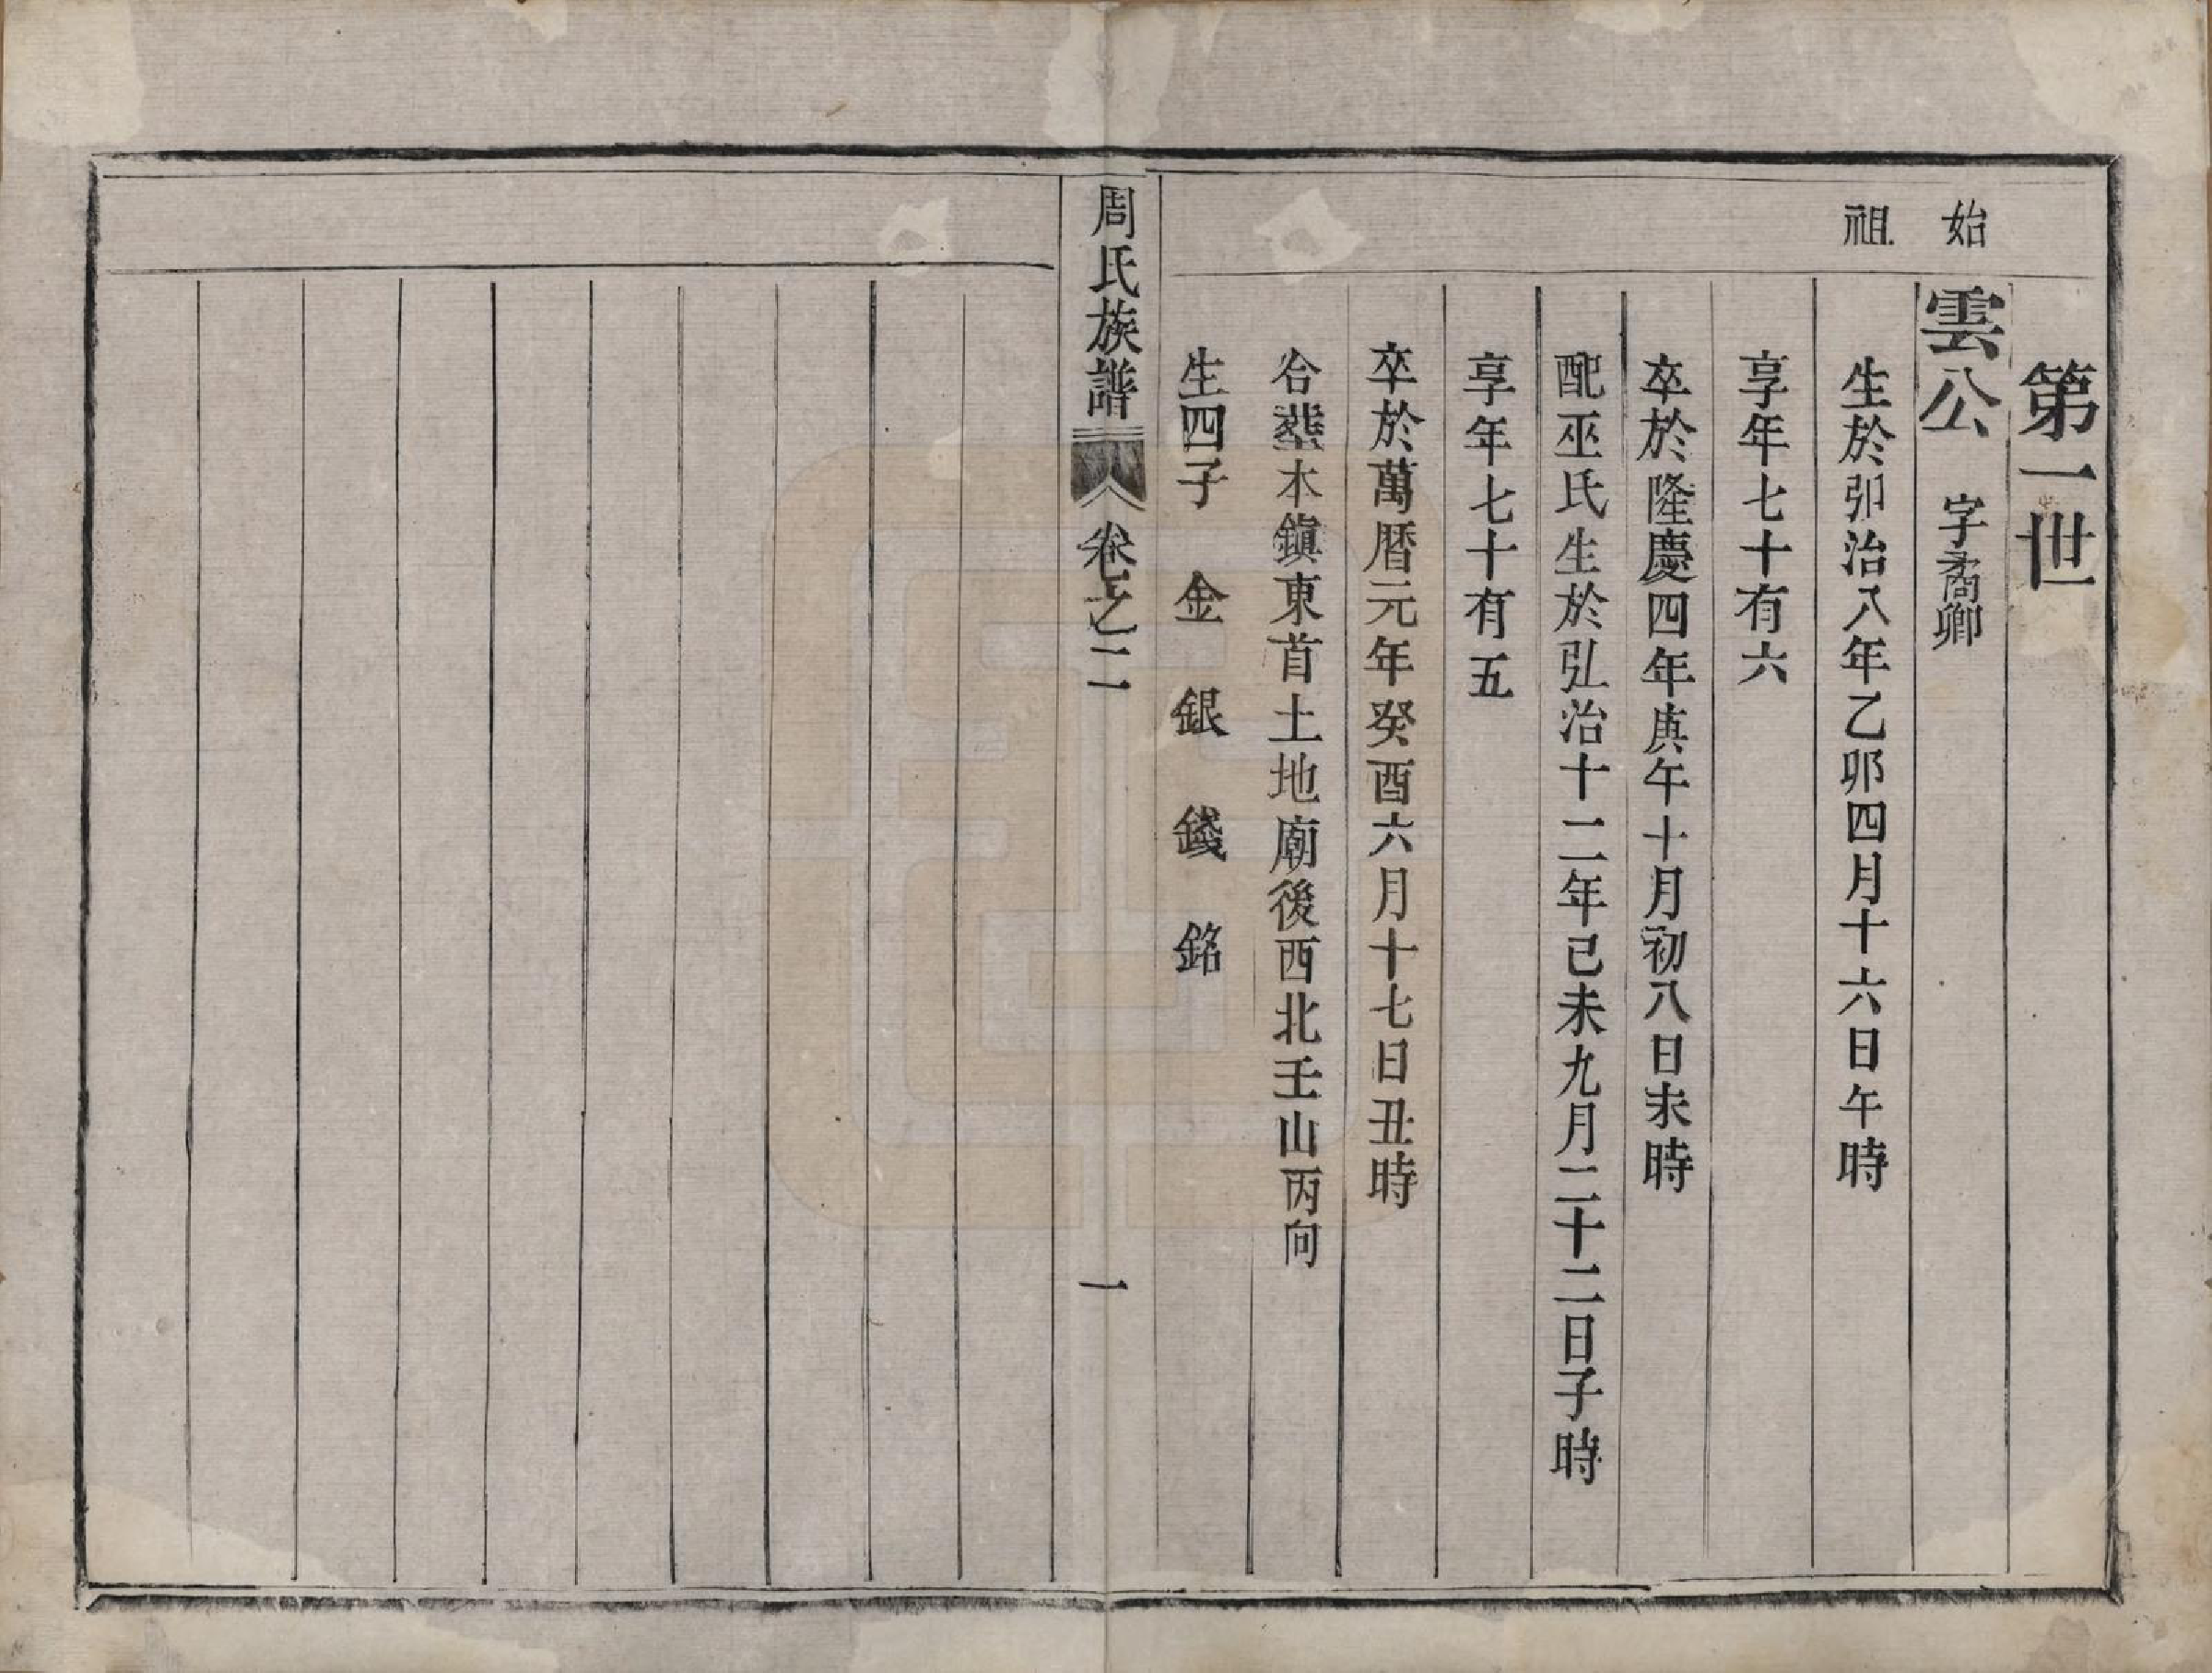 始祖
第一世
雲公 字矞卿
生於弘治八年乙卯四月十六日午時
享年七十有六
卒於隆慶四年庚午十月初八日未時
配巫氏生於弘治十二年己未九月二十二日子時
享年七十有五
卒於萬曆元年癸酉六月十七日丑時
合塟木鎭東首土地廟後西北壬山丙向
生四子 金 銀 錢 銘
周氏族譜 卷之二 一